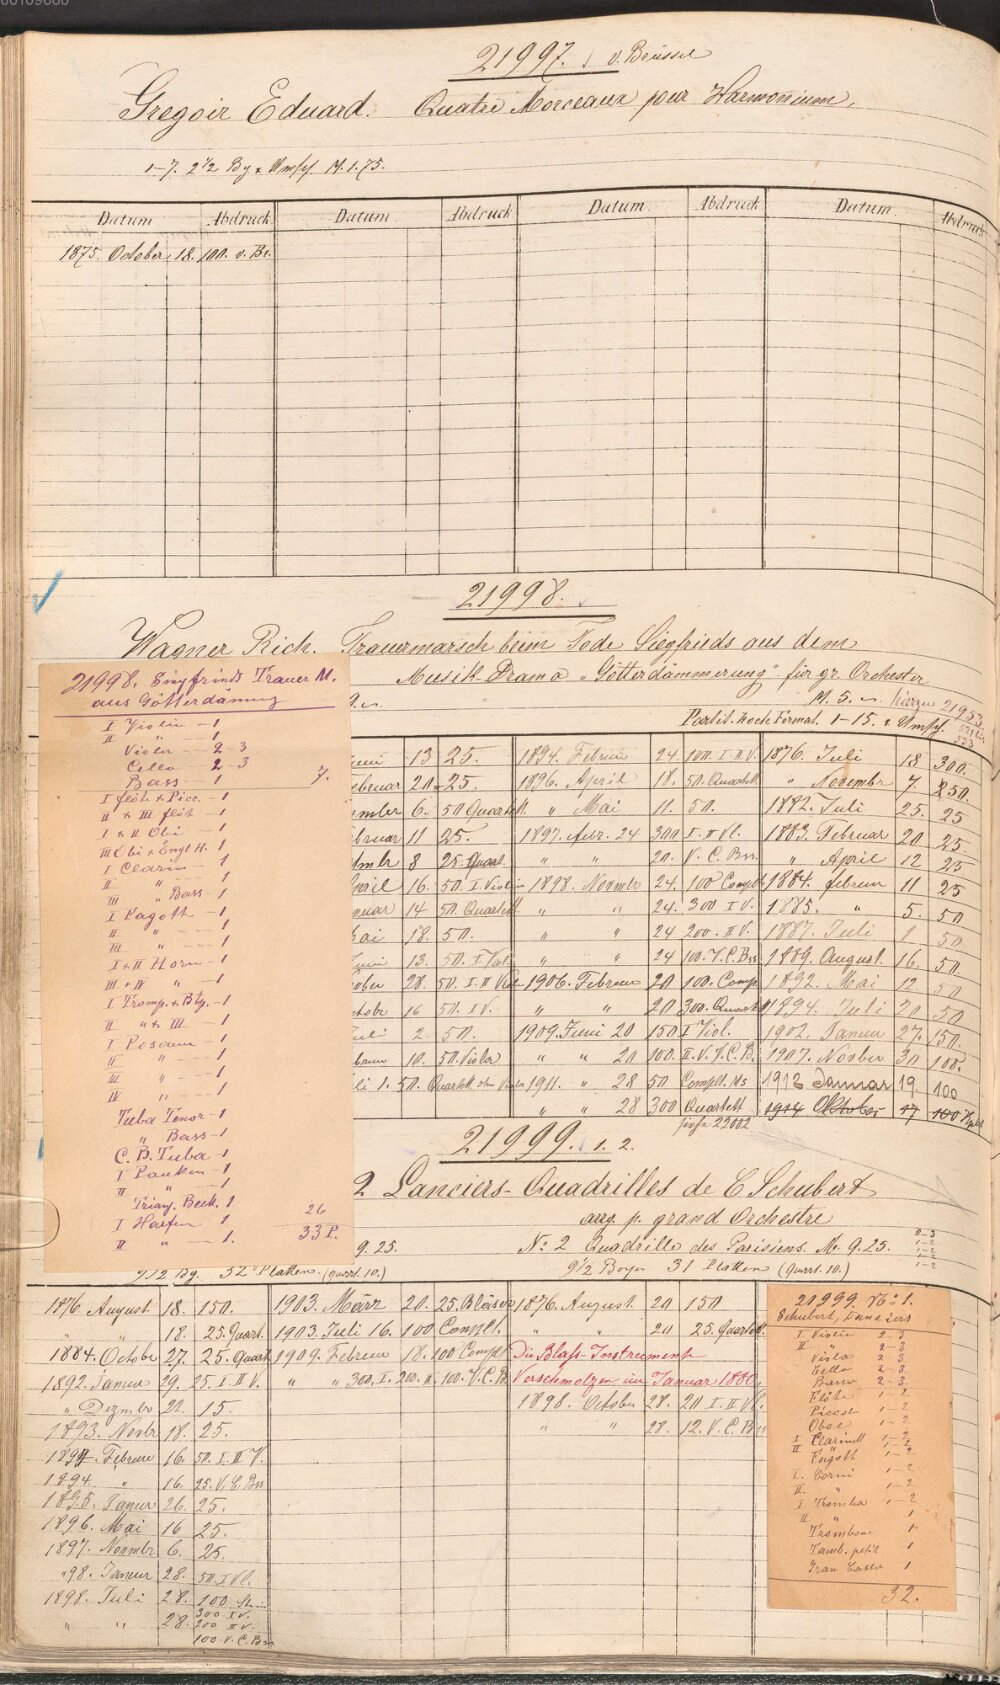 21997. v. Brüssel
Gregoir Eduard. Quatre Morceaux pour Harmonium.
1-7. 2 1/2 Bg. M. 1.75.
Datum Abdruck Datum Abdruck Datum Abdruck Datum Abdruck
1875. October 18. 100. v. Br.
21998.
Wagner Rich. Trauermarsch beim Tode Siegfrieds aus dem
Musik-Drama "Götterdämmerung" für gr. Orchester
M. 5. n. hierzu 21953
Partit. hoch Format. 1-15.
21998. Trauer M.
aus Götterdämung
I Violin - 1
II " - 1
Viola - 2-3
Cello - 2-3
Bass - 1 7.
I flöt & Picc. - 1
II & III flöt - 1
I & II Obi - 1
III Obi & Engl H. - 1
I Clarin - 1
II " - 1
III " Bass - 1
I Fagott - 1
II " - 1
III " - 1
I & II Horn - 1
III & IV " - 1
I Tromp. & Btp. - 1
II " & III - 1
I Posaun - 1
II " - 1
III " - 1
IV " - 1
Tuba Tenor - 1
" Bass - 1
C. B. Tuba - 1
I Pauken - 1
II " - 1
Triang. Beck. 1
I Harfen 1 26
II " - 1. 33 P.
13 25. 1894. Februar 24 100. I II V. 1876. Juli 18. 300.
20 25. 1896. April 18. 50. Quartett " Novembr 7 250.
6. 50 Quartett " Mai 11. 50. 1882. Juli 25. 25
11 25. 1897. 24 300 I. II Vl. 1883. Februar 20 25.
8 25. Quart. " " 20. V. C. Bss. " April 12 25
16. 50. I Violin 1898. Novmbr 24. 100 Compl. 1884. februar 11 25
14 50. Quartett " " 24. 300 I V. 1885. " 5. 50
18. 50. " " 24 200. II V. 1887. Juli 1 50
13. 50. I Viol. " " 24 100. V. C. Bss. 1889. August. 16. 50.
28. 50. I. II Viol. 1906. Februar 20 100. Comp. 1892. Mai 12 50
16 50. I V. " " 20 300. Quartett 1894. Juli 20 50
2. 50. 1909. Juni 20 150 I Viol. 1902. Januar 27. 150.
10. 50. Viola " " 20 100. II. V. V. C. B. 1907. Novber 30 100.
1. 50. Quartett ohn Viola 1911. " 28 50 Compl. 1912 Januar 19. 100
" " 28 300 Quartett 1914 Oktober 17 100
22002
21999. 1. 2.
2 Lanciers-Quadrilles de C Schubert
arrg. p. grand Orchestre
9.25. No: 2 Quadrille des Parisiens. M. 9.25.
9 1/2 Bg. 32 Platten. (Quart. 10.) 9 1/2 Bogn 31 Platten (Quart. 10.)
2-3
1-2
1-2
1-2
1876 August 18. 150. 1903. März 20. 25. Bläser 1876. August. 20 150
" " 18. 25. Quart. 1903. Juli 16. 100 Compl. " " 20 25. Quartett
1884. Octobr 27. 25. Quart 1909. Februar 18. 100 Compl Die Blass-Instrumente
1892. Januar 29. 25. I. II V. " " 300. I. 200. II. 100. V. C. B. Verschmolzen im Januar 1880.
" Dezmbr 21. 15. 1898. October 28. 20 I. II V.
1893. Novbr 18. 25. " " 28. 12. V. C. B
1894. Februar 16. 50. I. II V.
1894. " 16. 25. V. C. Bss
1895. Januar 26. 25.
1896. Mai 16 25.
1897. Novmbr 6. 25.
" 98. Januar 28. 50. I Vl.
1898. Juli 28. 100
" " 28. 300 I V.
200 II V.
100. V. C. Bss
21999. No: 1.
Schubert, Lanciers
I Violin 2-3
II " 2-3
Viola 2-3
Cello 2-3
Basso 2-3
Flöte 1-2
Piccol 1-2
Oboe 1-2
I Clarinett 1-2
II " 1-2
Fagott 1-2
I. Corni 1-2
II. " 1-2
I. Tromba 1-2
II " 1
Trombone 1
Tamb. petit 1
Gran Casso 1
32.